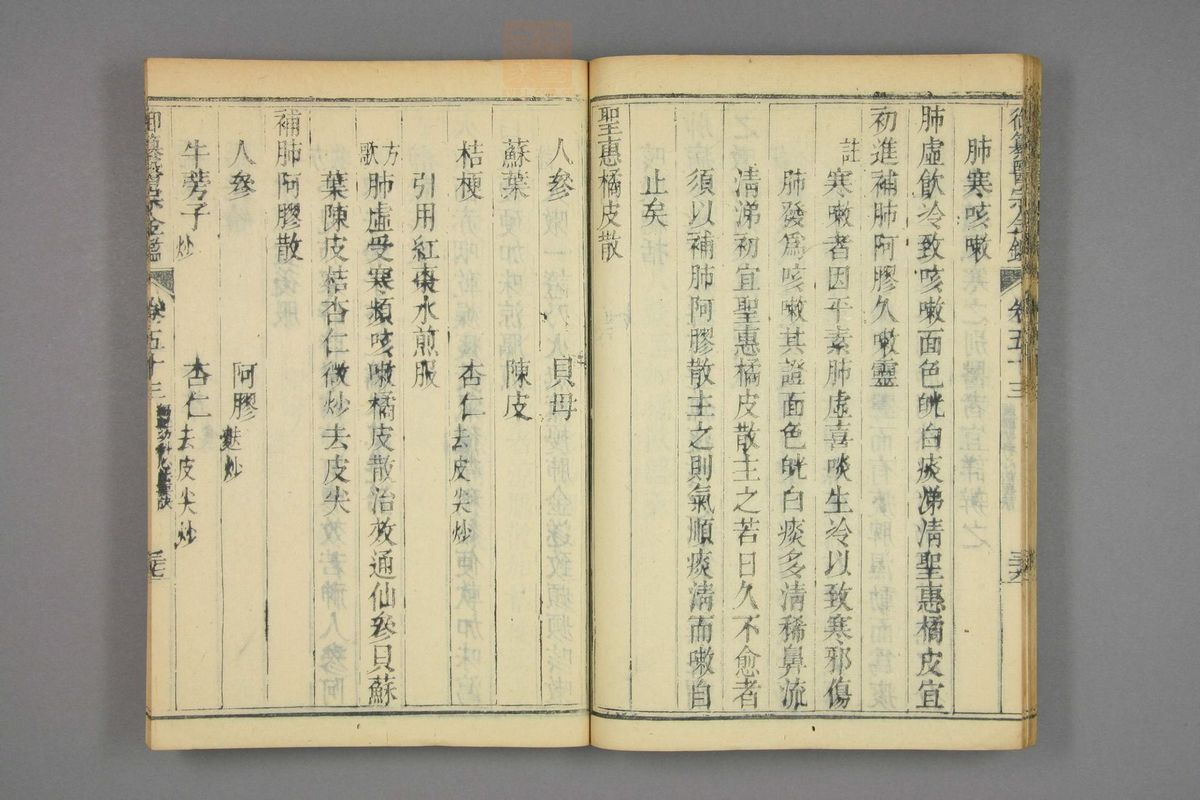 肺寒咳嗽
肺虛飲冷致咳嗽面色㿠白痰涕清聖惠橘皮宜
初進補肺阿膠久嗽靈
註 寒嗽者因平素肺虛喜啖生冷以致寒邪傷
肺發為咳嗽其證面色㿠白痰多清稀鼻流
清涕初宜聖惠橘皮散主之若日久不愈者
須以補肺阿膠散主之則氣順痰清而嗽自
止矣
聖惠橘皮散
人參 貝母
蘇葉 陳皮
桔梗 杏仁去皮尖炒
引用紅棗水煎服
方歌 肺虛受寒頻咳嗽橘皮散治效通仙參貝蘇
葉陳皮桔杏仁微炒去皮尖
補肺阿膠散
人參 阿膠麩炒
牛蒡子炒 杏仁去皮尖炒
御纂醫宗金鑑 卷五十三
御纂醫宗金鑑 卷五十三